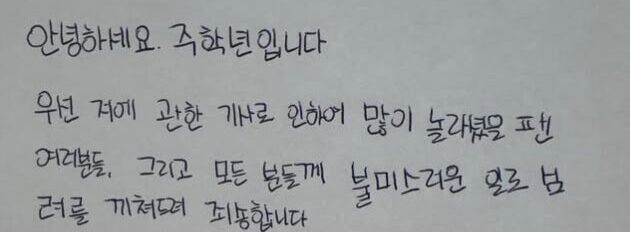 안녕하세요. 주학년입니다
우선 저에 관한 기사로 인하여 많이 놀라셨을 팬
여러분들, 그리고 모든 분들께 불미스러운 일로 심
려를 끼쳐드려 죄송합니다